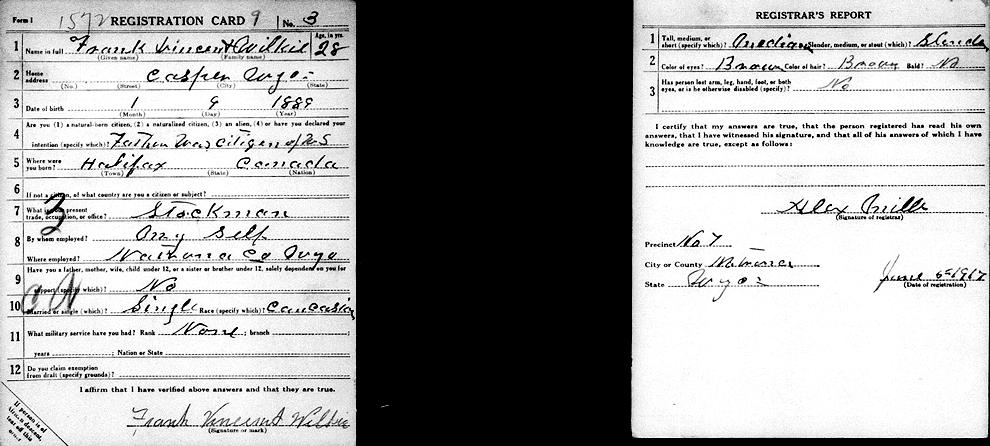 Form 1 1572 REGISTRATION CARD 9 No. 3
1 Name in full Frank Vincent Wilkie Age, in yrs. 28
(Given name) (Family name)
2 Home address Casper Wyo.
(No.) (Street) (City) (State)
3 Date of birth 1 9 1889
(Month) (Day) (Year)
4 Are you (1) a natural-born citizen, (2) a naturalized citizen, (3) an alien, (4) or have you declared your
intention (specify which)? Father was citizen of U.S
5 Where were you born? Halifax Canada
(Town) (State) (Nation)
6 If not a citizen, of what country are you a citizen or subject?
7 What is your present trade, occupation, or office? Stockman
8 By whom employed? My Self
Where employed? Natrona Co Wyo
9 Have you a father, mother, wife, child under 12, or a sister or brother under 12, solely dependent on you for
support (specify which)? No
10 Married or single (which)? Single Race (specify which)? Caucasian
11 What military service have you had? Rank None ; branch
years ; Nation or State
12 Do you claim exemption from draft (specify grounds)?
I affirm that I have verified above answers and that they are true.
Frank Vincent Wilkie
(Signature or mark)
If person is of
African descent,
tear off this
corner
REGISTRAR'S REPORT
1 Tall, medium, or short (specify which)? Medium Slender, medium, or stout (which)? Slender
2 Color of eyes? Brown Color of hair? Brown Bald? No
3 Has person lost arm, leg, hand, foot, or both eyes, or is he otherwise disabled (specify)? No
I certify that my answers are true, that the person registered has read his own
answers, that I have witnessed his signature, and that all of his answers of which I have
knowledge are true, except as follows:
Alex Mills
(Signature of registrar)
Precinct No. 7
City or County Natrona
State Wyo.
June 5 1917
(Date of registration)